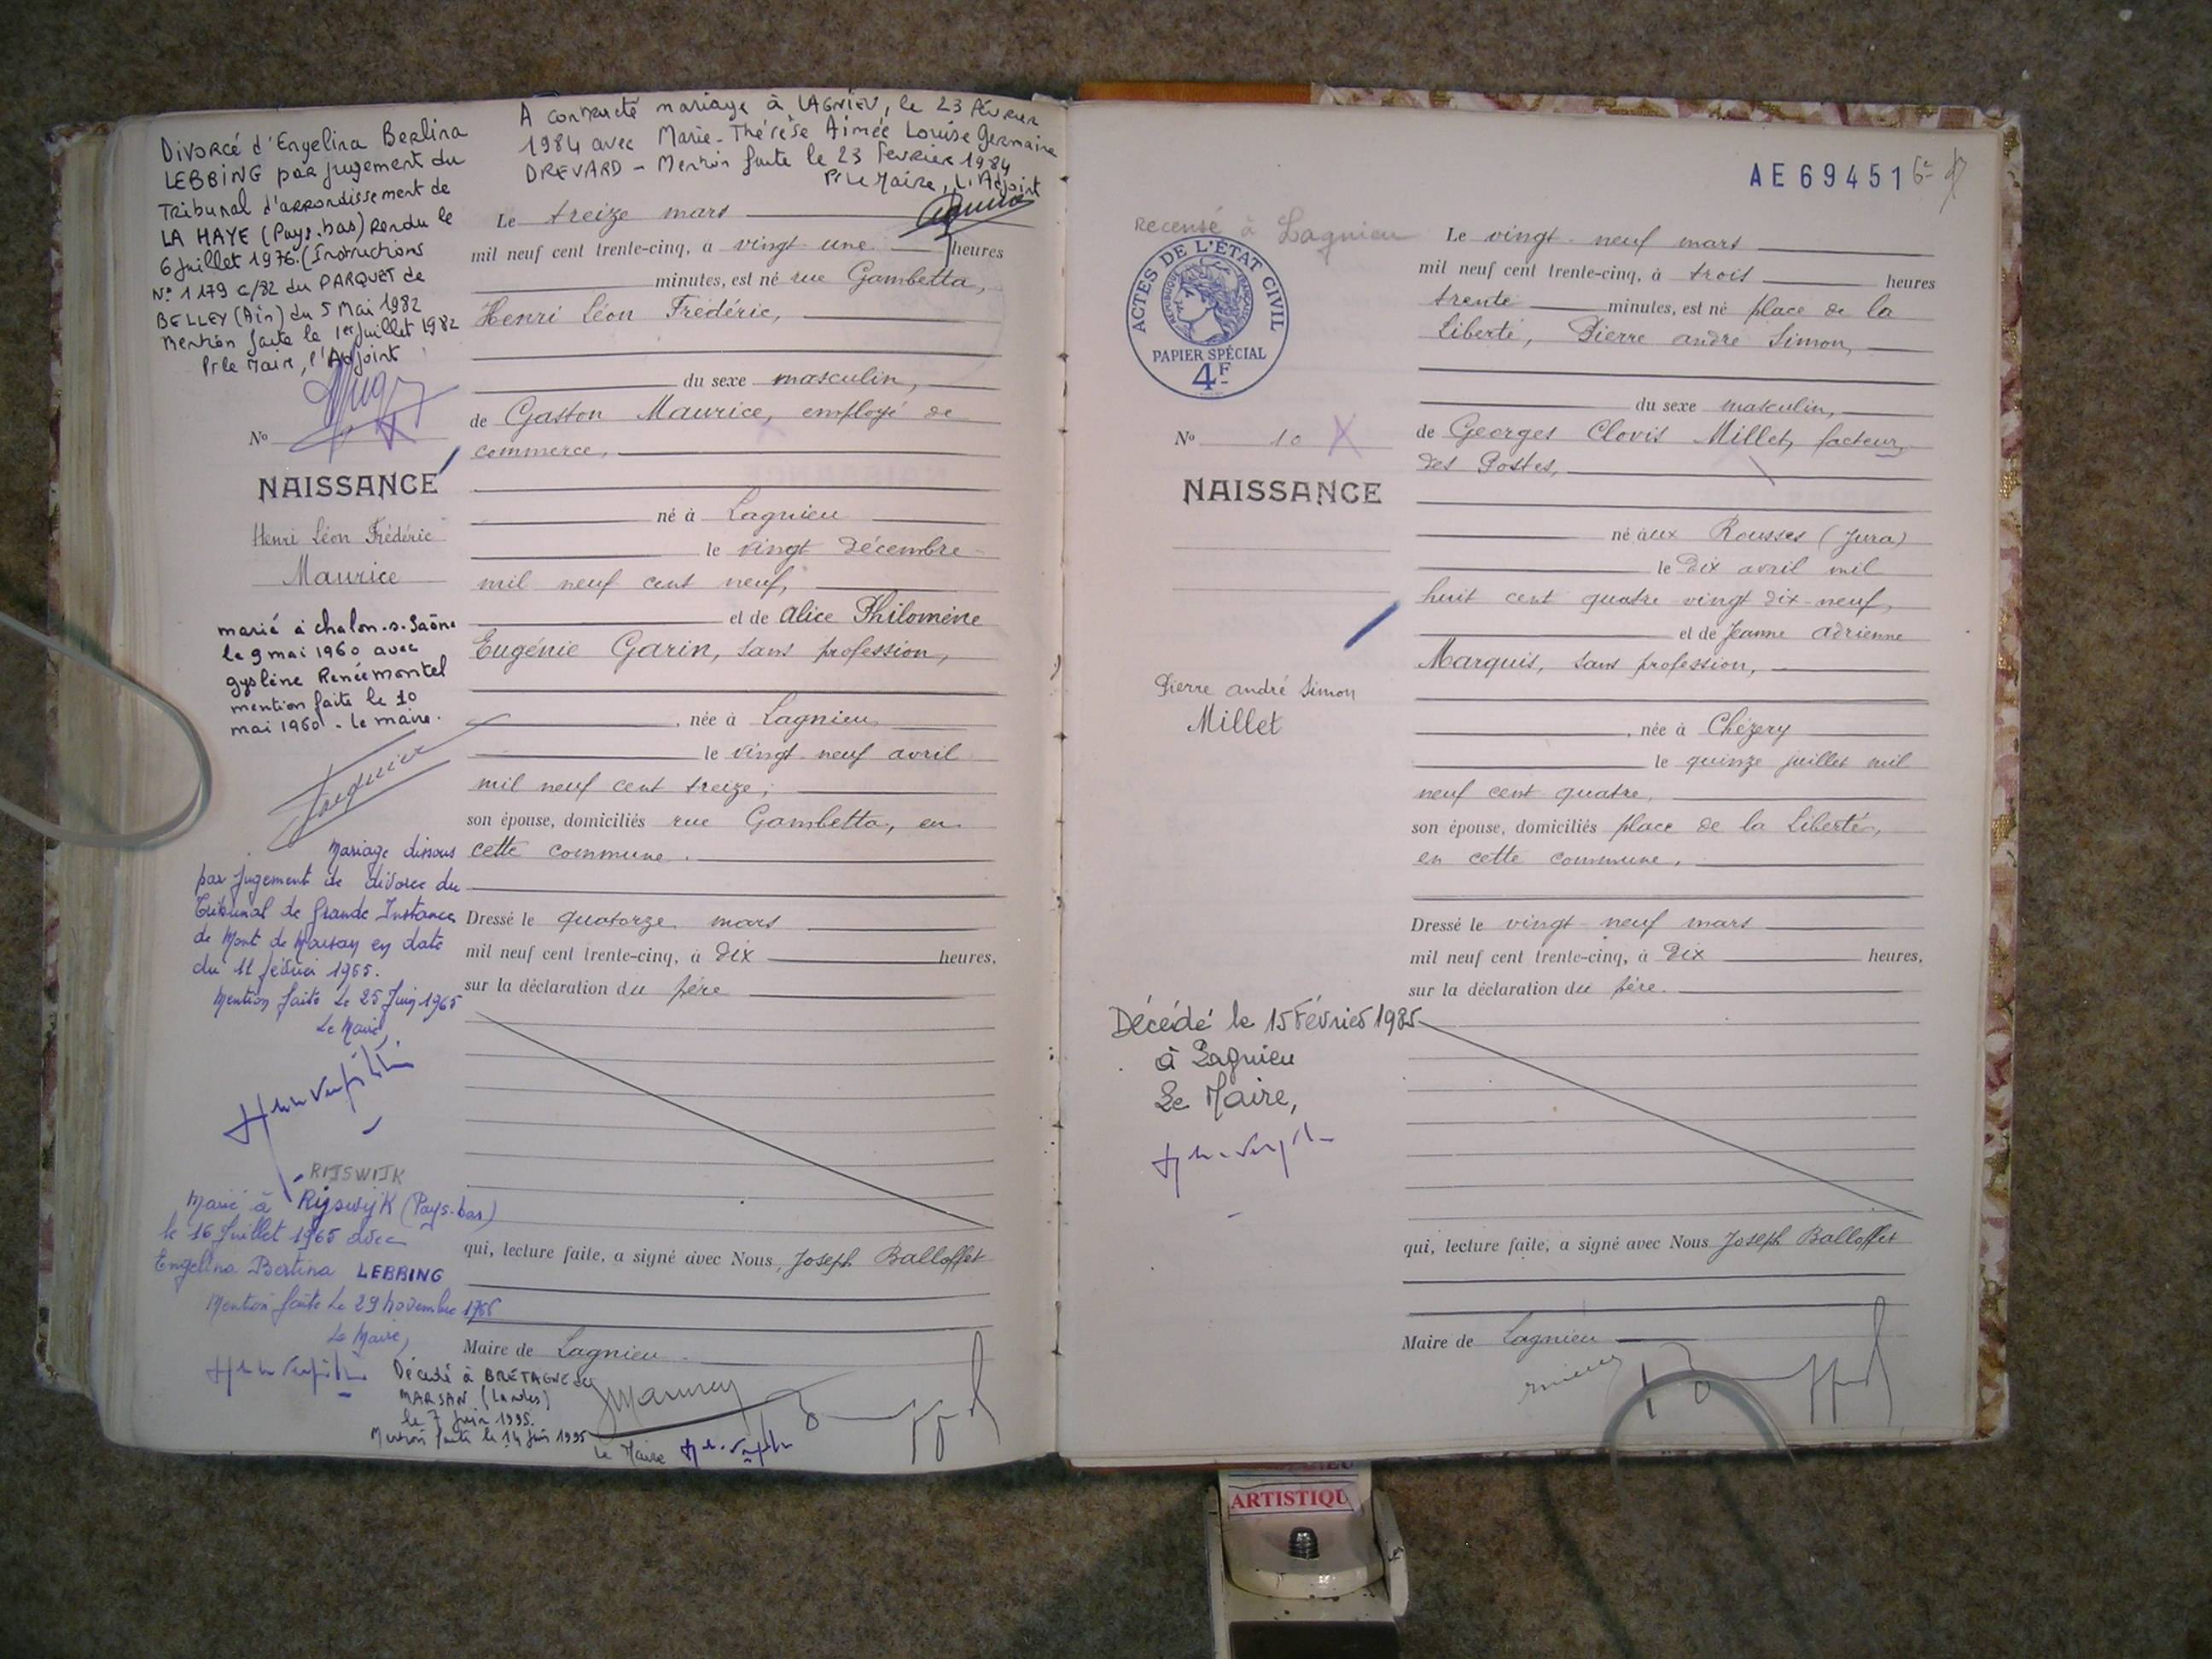 Divorcé d'Engelina Berlina
LEBBING par jugement du
Tribunal d'arrondissement de
LA HAYE (Pays.bas) Rendu le
6 juillet 1976. (Instructions
N° 1179 C/82 du PARQUET de
BELLEY (Ain) du 5 Mai 1982
Mention faite le 1er Juillet 1982
Pr le Maire, l'Adjoint
A contracté mariage à LAGNIEU, le 23 Février
1984 avec Marie-Thérèse Aimée Louise Germaine
DREVARD - Mention faite le 23 Février 1984
Pr Le Maire, L'Adjoint
N°
NAISSANCE
Henri Léon Frédéric
Maurice
marié à chalon.s.Saône
le 9 mai 1960 avec
gyslène Renée montel
mention faite le 10
mai 1960. le maire.
Mariage dissous
par jugement de divorce du
Tribunal de Grande Instance
de Mont de Marsan en date
du 11 février 1965.
Mention faite Le 25 Juin 1965
Le Maire,
RIJSWIJK
Marié à Rijswijk (Pays-bas)
le 16 Juillet 1965 avec
Engelina Bertina LEBBING
Mention faite Le 29 novembre
Le Maire,
Décédé à BRETAGNE de
MARSAN (Landes)
le 7 Juin 1995.
Mention faite le 14 Juin 1995
Le Maire
Le treize mars
mil neuf cent trente-cinq, à vingt une heures
minutes, est né rue Gambetta,
Henri Léon Frédéric,
du sexe masculin,
de Gaston Maurice, employé de
commerce,
né à Lagnieu
le vingt décembre
mil neuf cent neuf,
et de Alice Philomène
Eugénie Garin, sans profession,
, née à Lagnieu
le vingt-neuf avril
mil neuf cent treize;
son épouse, domiciliés rue Gambetta, en
cette commune.
Dressé le quatorze mars
mil neuf cent trente-cinq, à dix heures,
sur la déclaration du père
qui, lecture faite, a signé avec Nous, Joseph Balloffet
Maire de Lagnieu.
AE69451
recensé à Lagnieu
ACTES DE L'ÉTAT CIVIL
RÉPUBLIQUE FRANÇAISE
PAPIER SPÉCIAL
4F
N° 10
NAISSANCE
Pierre andré Simon
Millet
Décédé le 15 Février 1985
à Lagnieu
Le Maire,
Le vingt-neuf mars
mil neuf cent trente-cinq, à trois heures
trente minutes, est né place de la
Liberté, Pierre andré Simon,
du sexe masculin,
de Georges Clovis Millet, facteur
des Postes,
né aux Rousses (Jura)
le dix avril mil
huit cent quatre vingt dix-neuf,
et de Jeanne adrienne
Marquis, sans profession,
, née à Chézery
le quinze juillet mil
neuf cent quatre,
son épouse, domiciliés place de la Liberté,
en cette commune,
Dressé le vingt-neuf mars
mil neuf cent trente-cinq, à dix heures,
sur la déclaration du père.
qui, lecture faite, a signé avec Nous Joseph Balloffet
Maire de Lagnieu
ARTISTIQU